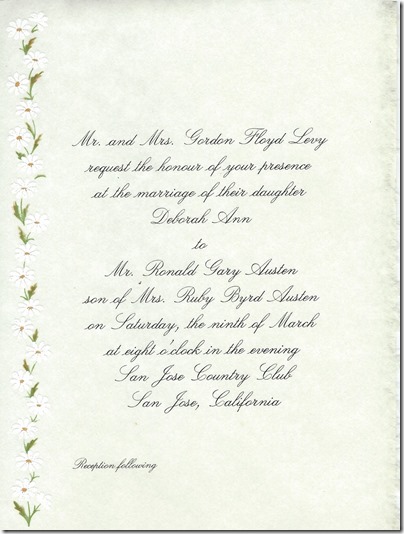 Mr. and Mrs. Gordon Floyd Levy
request the honour of your presence
at the marriage of their daughter
Deborah Ann
to
Mr. Ronald Gary Austen
son of Mrs. Ruby Byrd Austen
on Saturday, the ninth of March
at eight o'clock in the evening
San Jose Country Club
San Jose, California
Reception following